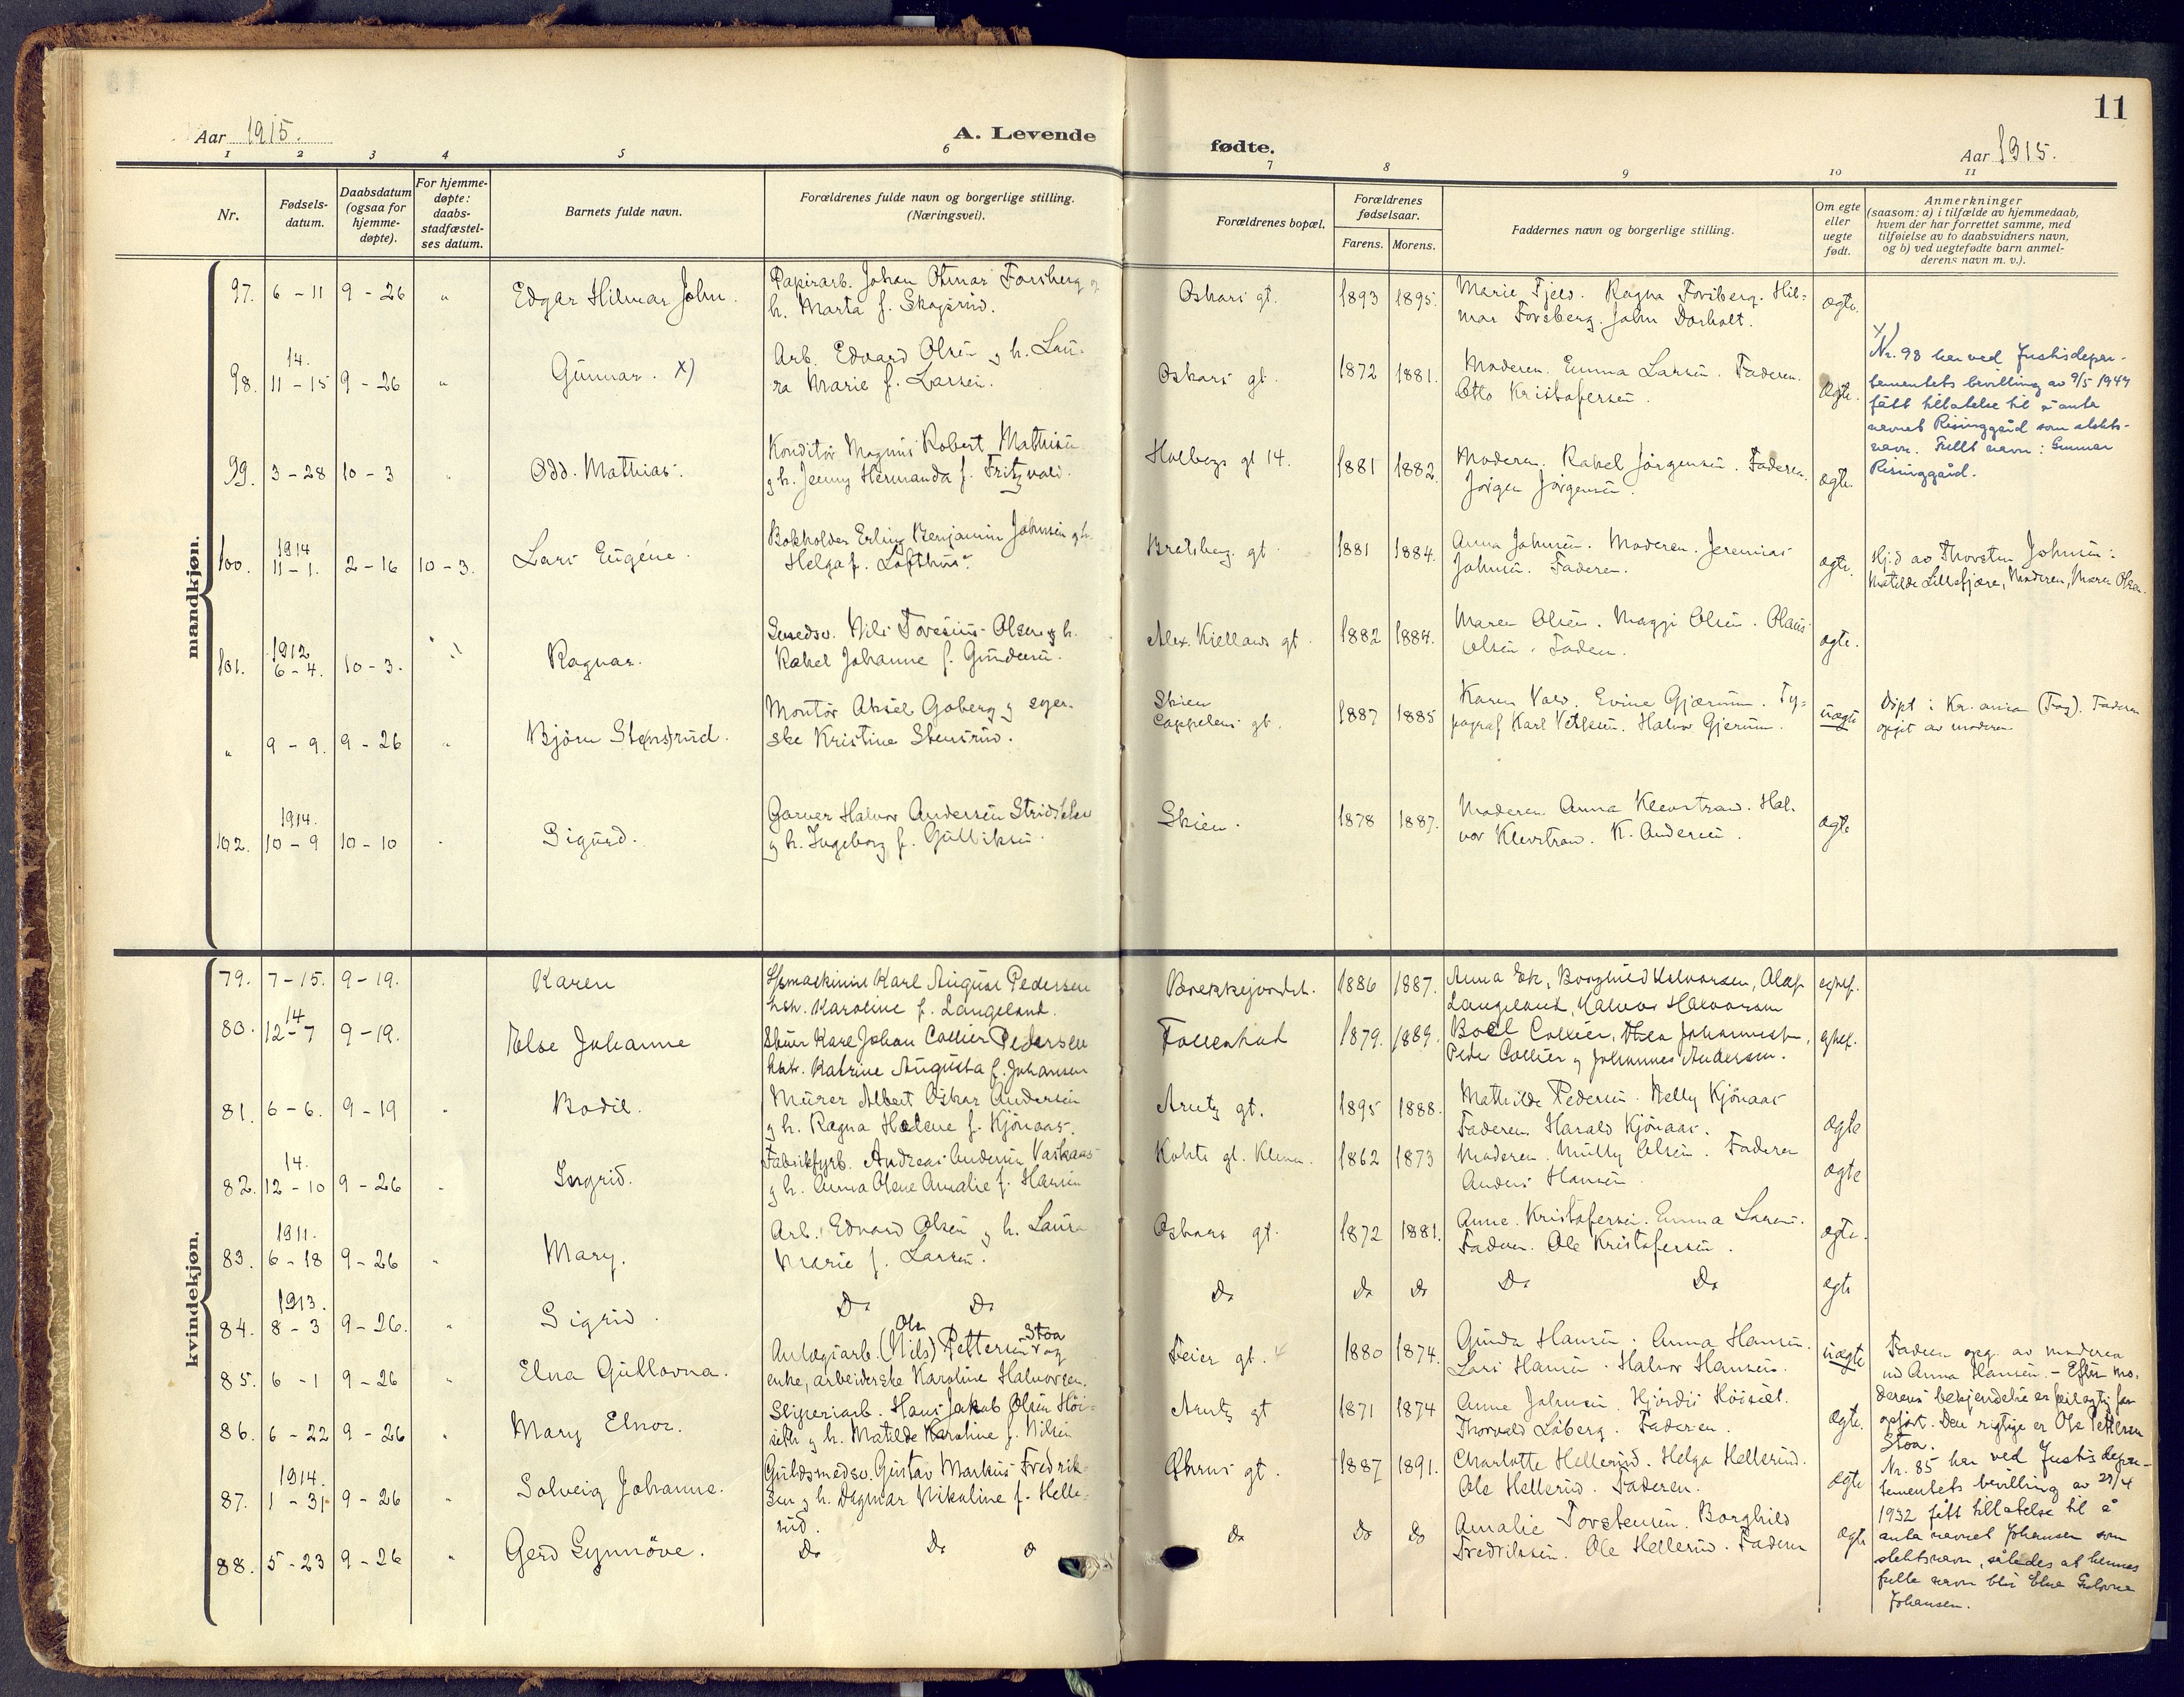 11
Aar 1915.
A. Levende
fødte.
Aar 1915.
1 2 3 4 5 6 7 8 9 10 11
Nr.
Fødsels-
datum.
Daabsdatum
(ogsaa for
hjemme-
døpte).
For hjemme-
døpte:
daabs-
stadfæstel-
ses datum.
Barnets fulde navn.
Forældrenes fulde navn og borgerlige stilling.
(Næringsvei).
Forældrenes bopæl.
Forældrenes
fødselsaar.
Farens. Morens.
Faddernes navn og borgerlige stilling.
Om egte
eller
uegte
født.
Anmerkninger
(saasom: a) i tilfælde av hjemmedaab,
hvem der har forrettet samme, med
tilføielse av to daabsvidners navn,
og b) ved uegtefødte barn anmel-
derens navn m. v.).
mandkjøn.
97. 6 - 11 9 - 26 " Edgar Hilmar John.
Papirarb. Johan Otmar Forsberg og
h. Marta f. Skapirud.
Oskars gt. 1893 1895.
Marie Fjeld. Ragna Forsberg. Hil-
mar Forsberg. John Dorholt.
ægte.
98. 14. 11 - 15 9 - 26 " Gunnar. x)
Arb. Edvard Olsen og h. Lau-
ra Marie f. Larsen.
Oskars gt. 1872 1881.
Moderen. Emma Larsen. Faderen.
Otto Kristofersen.
Ægte.
x)
Nr. 98 har ved Justisdepar-
tementets bevilling av 9/5 1947
fått tillatelse til å anta
navnet Risinggård som slekts-
navn. Fullt navn: Gunnar
Risinggård.
99. 3 - 28 10 - 3 " Odd Mathias.
Konditor Magnus Robert Mathisen
og h. Jenny Hermanda f. Fritzvold.
Holbergs gt 14. 1881 1882.
Moderen. Rakel Jörgensen. Faderen.
Jörgen Jörgensen.
ægte.
100. 1914 11 - 1. 2 - 16 10 - 3. Lars Eugéne.
Bokholder Erling Benjamin Johnsen og h.
Helga f. Lofthus.
Bratsberg gt. 1881 1884.
Anna Johnsen. Moderen. Jeremias
Johnsen. Faderen.
ægte.
Hj.d av Thorsten Johnsen:
Matilde Lillefjære, Moderen, Maren Olsen.
101. 1912 6 - 4. 10 - 3. " Ragnar.
Smedsv. Nils Tovesius Olsen og h.
Rakel Johanne f. Gundersen.
Alex. Kiellands gt. 1882 1884.
Maren Olsen. Maggi Olsen. Olaus
Olsen. Faderen.
ægte.
" 9 - 9. 9 - 26 " Björn Sten(s)rud.
Montör Aksel Gaberg og syer-
ske Kristine Stensrud.
Skien
Cappelens gt. 1887 1885
Karen Vold. Evine Gjærum. Ty-
pograf Karl Vetlesen. Halvor Gjerum.
uægte
Döpt i Kr.ania (Frog). Faderen
opgit av moderen
102. 1914. 10 - 9 10 - 10 " Sigurd.
Garver Halvor Andersen Stridsklev
og h. Ingeborg f. Gulliksen.
Skien. 1878 1887.
Moderen. Anna Klevstrand. Hal-
vor Klevstrand. K. Andersen.
ægte
kvindekjøn.
79. 7 - 15. 9 - 19. Karen
Karl August Pedersen
hstr. Karoline f. Langeland.
Brekkejordet. 1886 1887.
Anna Ek, Borghild Halvorsen, Olaf
Langeland, Halvor Halvorsen
egtef.
80. 14 12 - 7 9 - 19. Else Johanne
Karl Johan Collier Pedersen
hstr. Katrine Augusta f. Johansen
Follestad 1879. 1889.
Boel Collier, Thea Johannessen,
Peder Collier og Johannes Andersen.
egtef.
81. 6 - 6. 9 - 19 " Bodil.
Murer Albert Oskar Andersen
og h. Ragna Helene f. Kjönaas.
Arntz gt. 1895 1888.
Mathilde Pedersen. Nelly Kjönaas
Faderen. Harald Kjönaas.
ægte
82. 14. 12 - 10 9 - 26 " Ingrid.
Fabrikfyrb. Andreas Andersen Vaskaas
og h. Anna Olene Amalie f. Hansen
1862 1873
Moderen. Milly Olsen. Faderen
Anders Hansen.
ægte
83. 1911. 6 - 18 9 - 26 " Mary.
Arb. Edvard Olsen og h. Laura
Marie f. Larsen.
Oskars gt. 1872 1881.
Anne Kristofersen. Emma Larsen.
Faderen. Ole Kristofersen.
ægte.
84. 1913. 8 - 3 9 - 26. " Sigrid.
Do Do
Do Do Do Do Do ægte
85. 6 - 1 9 - 26 " Elna Gullovna.
Anlægsarb. (Nils) Ole Pettersen Stoa og
enke, arbeiderske Karoline Halvorsen.
Feier gt. 1880 1874.
Gunda Hansen. Anna Hansen.
Lars Hansen. Halvor Hansen.
uægte
Faderen opg. av moderen
ved Anna Hansen. - Efter mo-
derens bekjendelse er feilagtig far
opfört. Den rigtige er Ole Pettersen
Stoa.
Nr. 85 har ved Justisdepar-
tementets bevilling av 29/4
1932 fått tillatelse til å
anta navnet Johansen som
slektsnavn, således at hennes
fulle navn blir Elna Gulovna
Johansen.
86. 6 - 22 9 - 26 " Mary Elnor.
Sliperiarb. Hans Jakob Olsen Höi-
seth og h. Matilde Karoline f. Nilsen
Arntz gt 1871 1874
Anne Johnsen. Hjördis Höisæt.
Thorvald Löberg. Faderen.
Ægte.
87. 1914. 1 - 31 9 - 26 " Solveig Johanne.
Guldsmedsv. Gustav Markus Fredrik-
sen og h. Dagmar Nikoline f. Helle-
rud.
Öhrns gt. 1887 1891.
Charlotte Hellerud. Helga Hellerud.
Ole Hellerud. Faderen.
ægte
88. 5 - 23 9 - 26 " Gerd Synnöve.
Do Do
Do Do Do
Amalie Torstensen. Borghild
Fredriksen. Ole Hellerud. Faderen
ægte